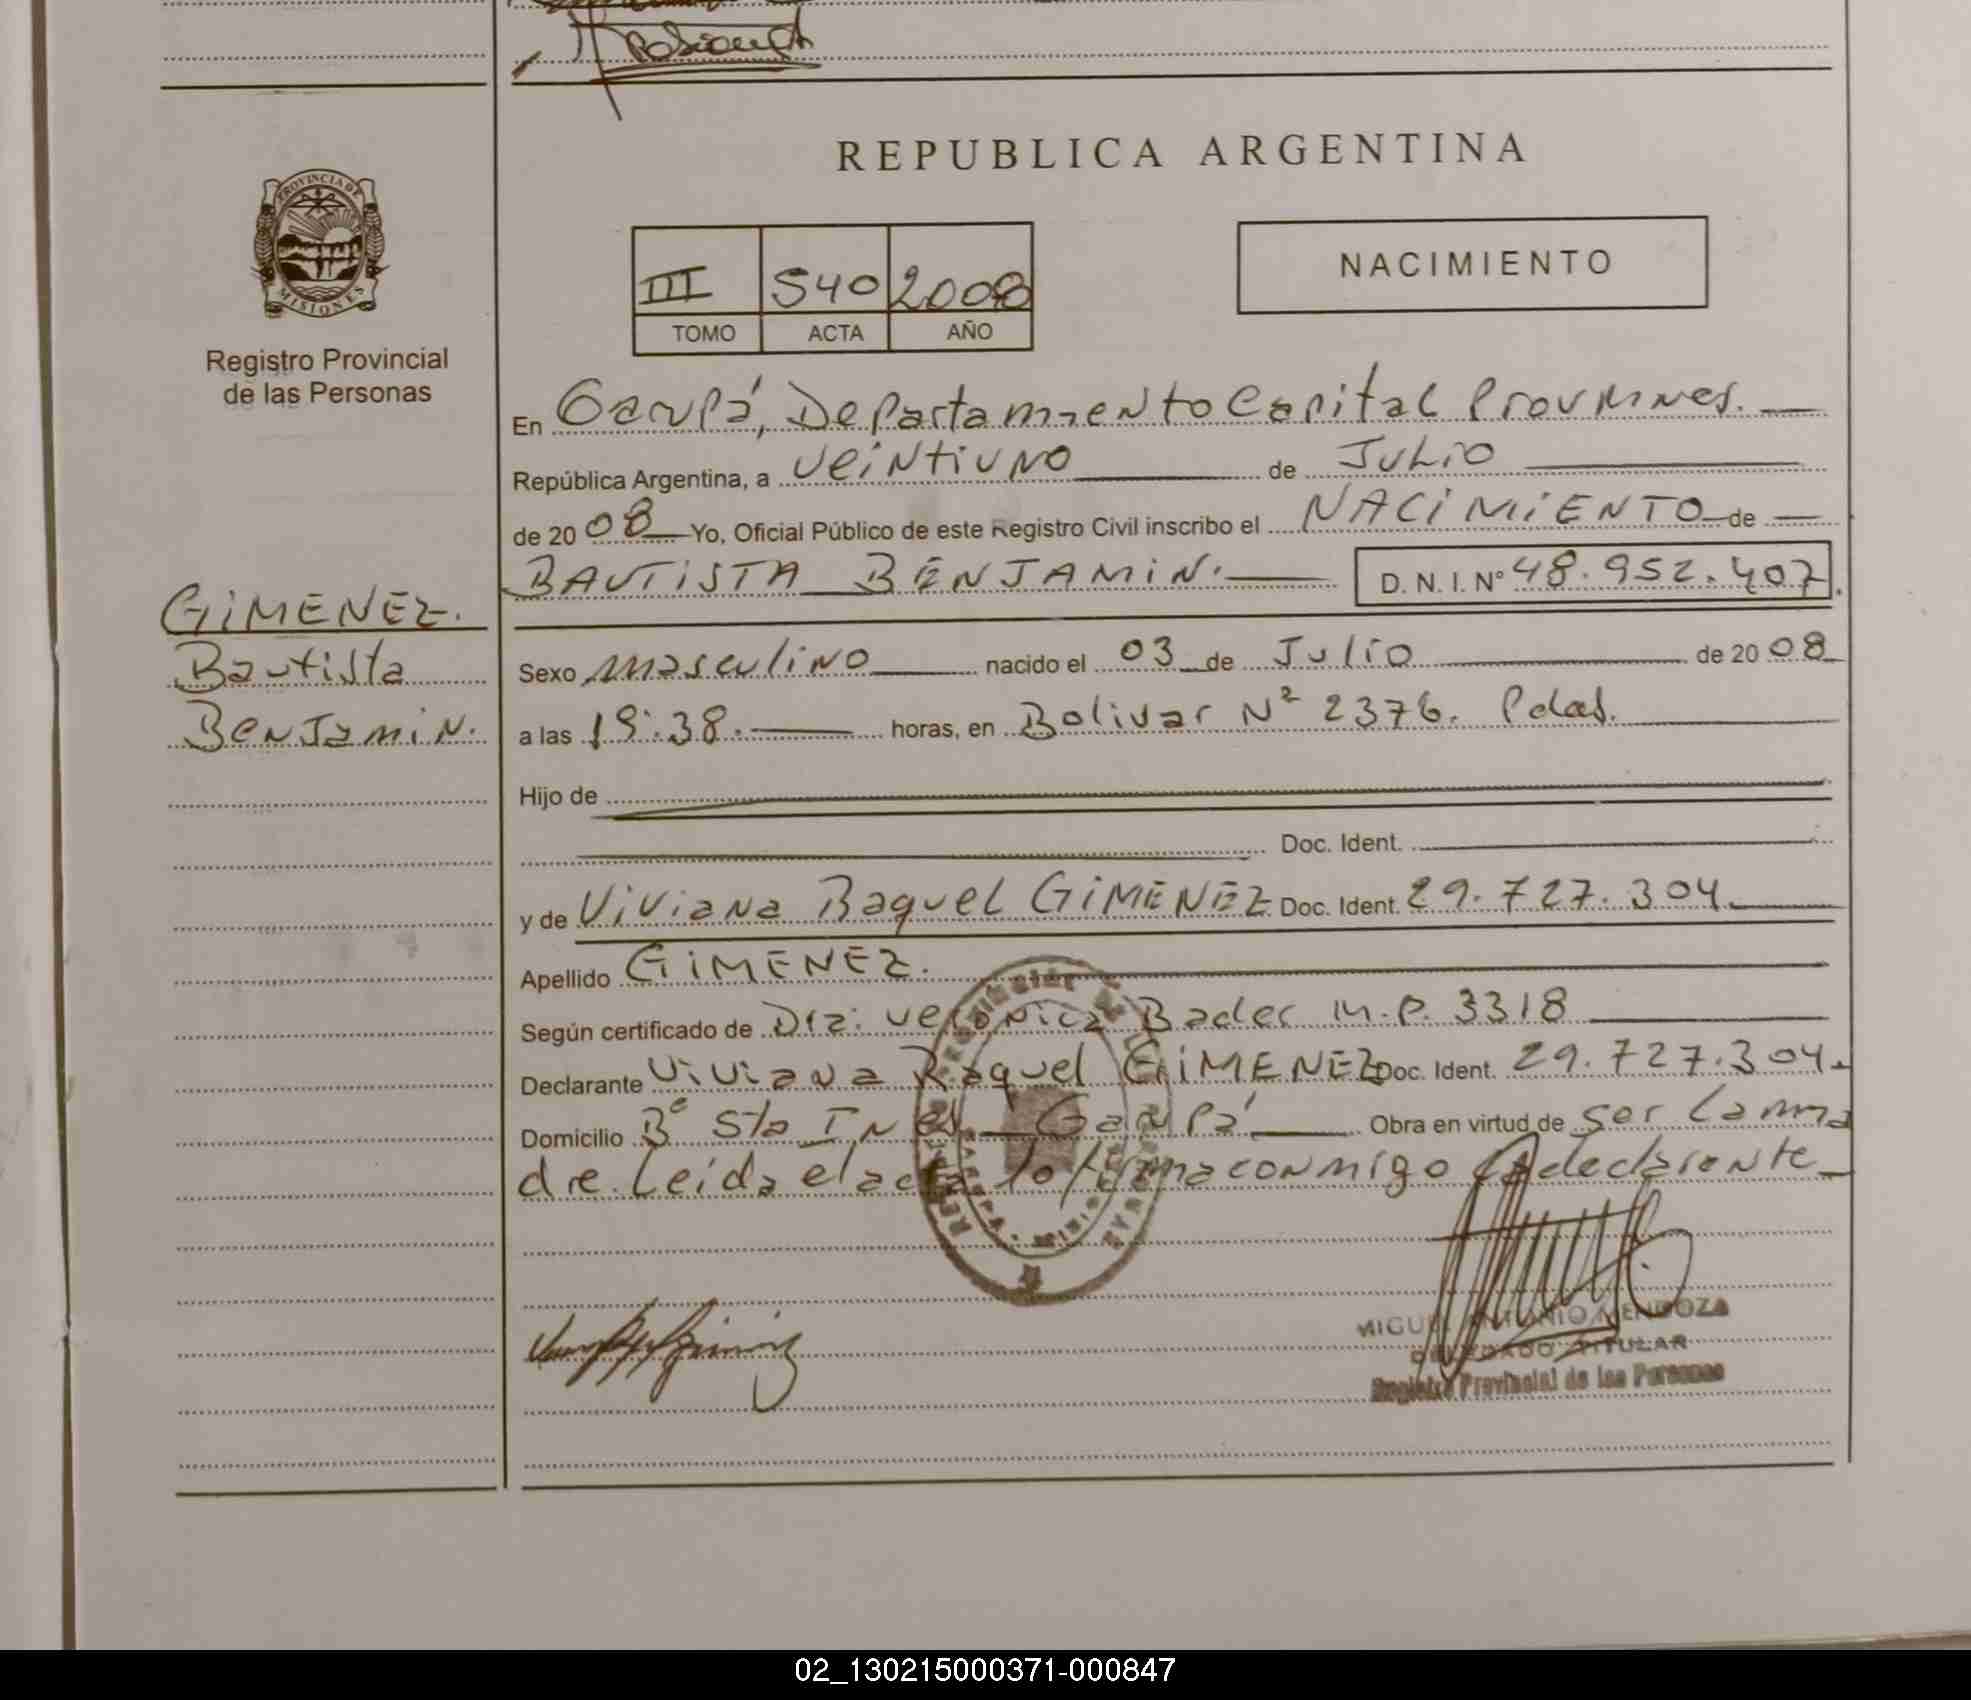 PROVINCIA DE
MISIONES
Registro Provincial
de las Personas
REPUBLICA ARGENTINA
III 540 2008
TOMO ACTA AÑO
NACIMIENTO
En Garupá, Departamiento Capital Prov Mnes.
República Argentina, a veintiuno de Julio
de 2008 Yo, Oficial Público de este Registro Civil inscribo el NACIMIENTO de
BAUTISTA BENJAMIN. D.N.I.Nº 48.952.407
GIMENEZ.
Bautista
Benjamin.
Sexo masculino nacido el 03 de Julio de 2008
a las 19:38. horas, en Bolivar Nº 2376. Pdas.
Hijo de
Doc. Ident.
y de Viviana Raquel GIMENEZ Doc. Ident. 29.727.304.
Apellido GIMENEZ.
Según certificado de Dra. Veronica Bader M.P. 3318
Declarante Viviana Raquel GIMENEZ Doc. Ident. 29.727.304.
Domicilio Bº Sta Ines Garupá Obra en virtud de ser la ma
dre. Leida el acta lo firma conmigo la declarante
MIGUEL ANTONIO MENDOZA
DELEGADO TITULAR
Registro Provincial de las Personas
02_130215000371-000847